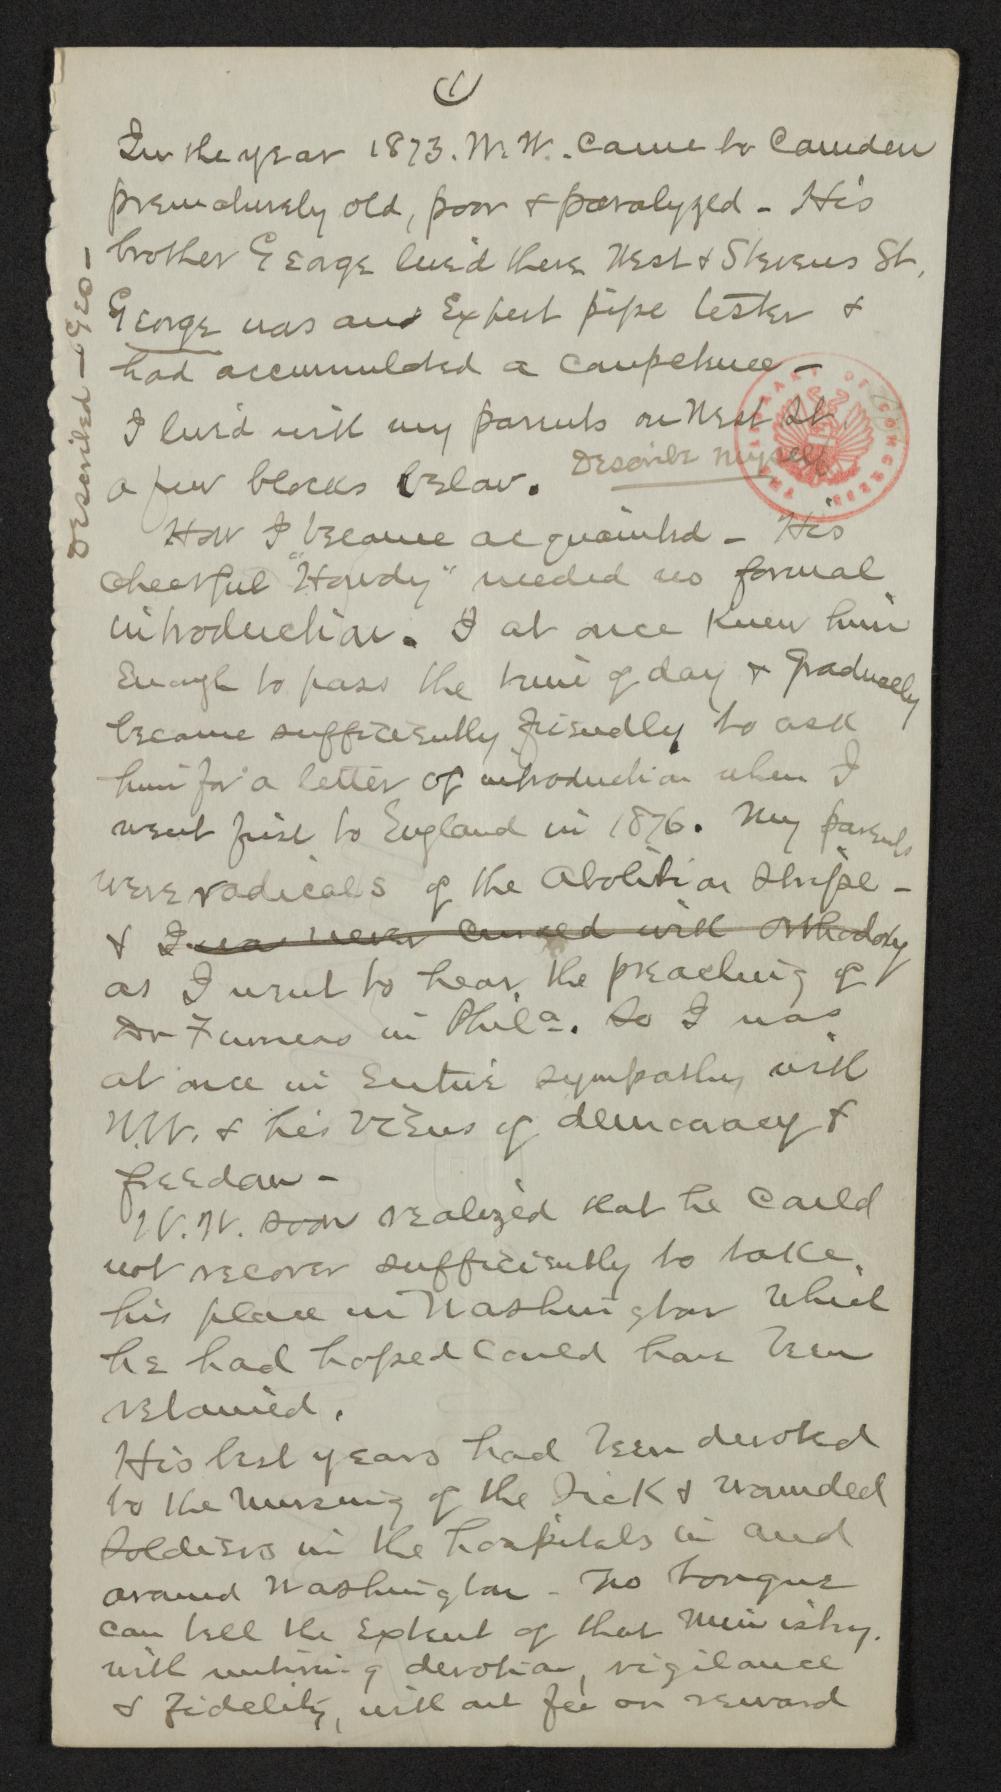 1
In the year 1873. W.W. came to Camden
prematurely old, poor & paralyzed - His
brother George lived there West & Stevens St.
George was an Expert pipe tester &
had accumulated a competence -
Described - Geo -
I lived with my parents on West St.
Describe Myself
a few blocks below.
How I became acquainted - His
cheerful "Howdy" needed no formal
introduction. I at once knew him
Enough to pass the time of day & gradually
became sufficiently friendly to ask
him for a letter of introduction when I
went first to England in 1876. My parents
were radicals of the Abolition stripe -
& I was never cursed with Orthodoxy
as I went to hear the preaching of
Dr Furness in Phila. So I was
at once in Entire sympathy with
W.W. & his views of democracy &
freedom -
W.W. soon realized that he could
not recover sufficiently to take
his place in Washington which
he had hoped could have been
retained.
His best years had been devoted
to the nursing of the sick & wounded
soldiers in the hospitals in and
around Washington - No tongue
can tell the Extent of that Ministry.
with untiring devotion, vigilance
& fidelity, with out fee or reward